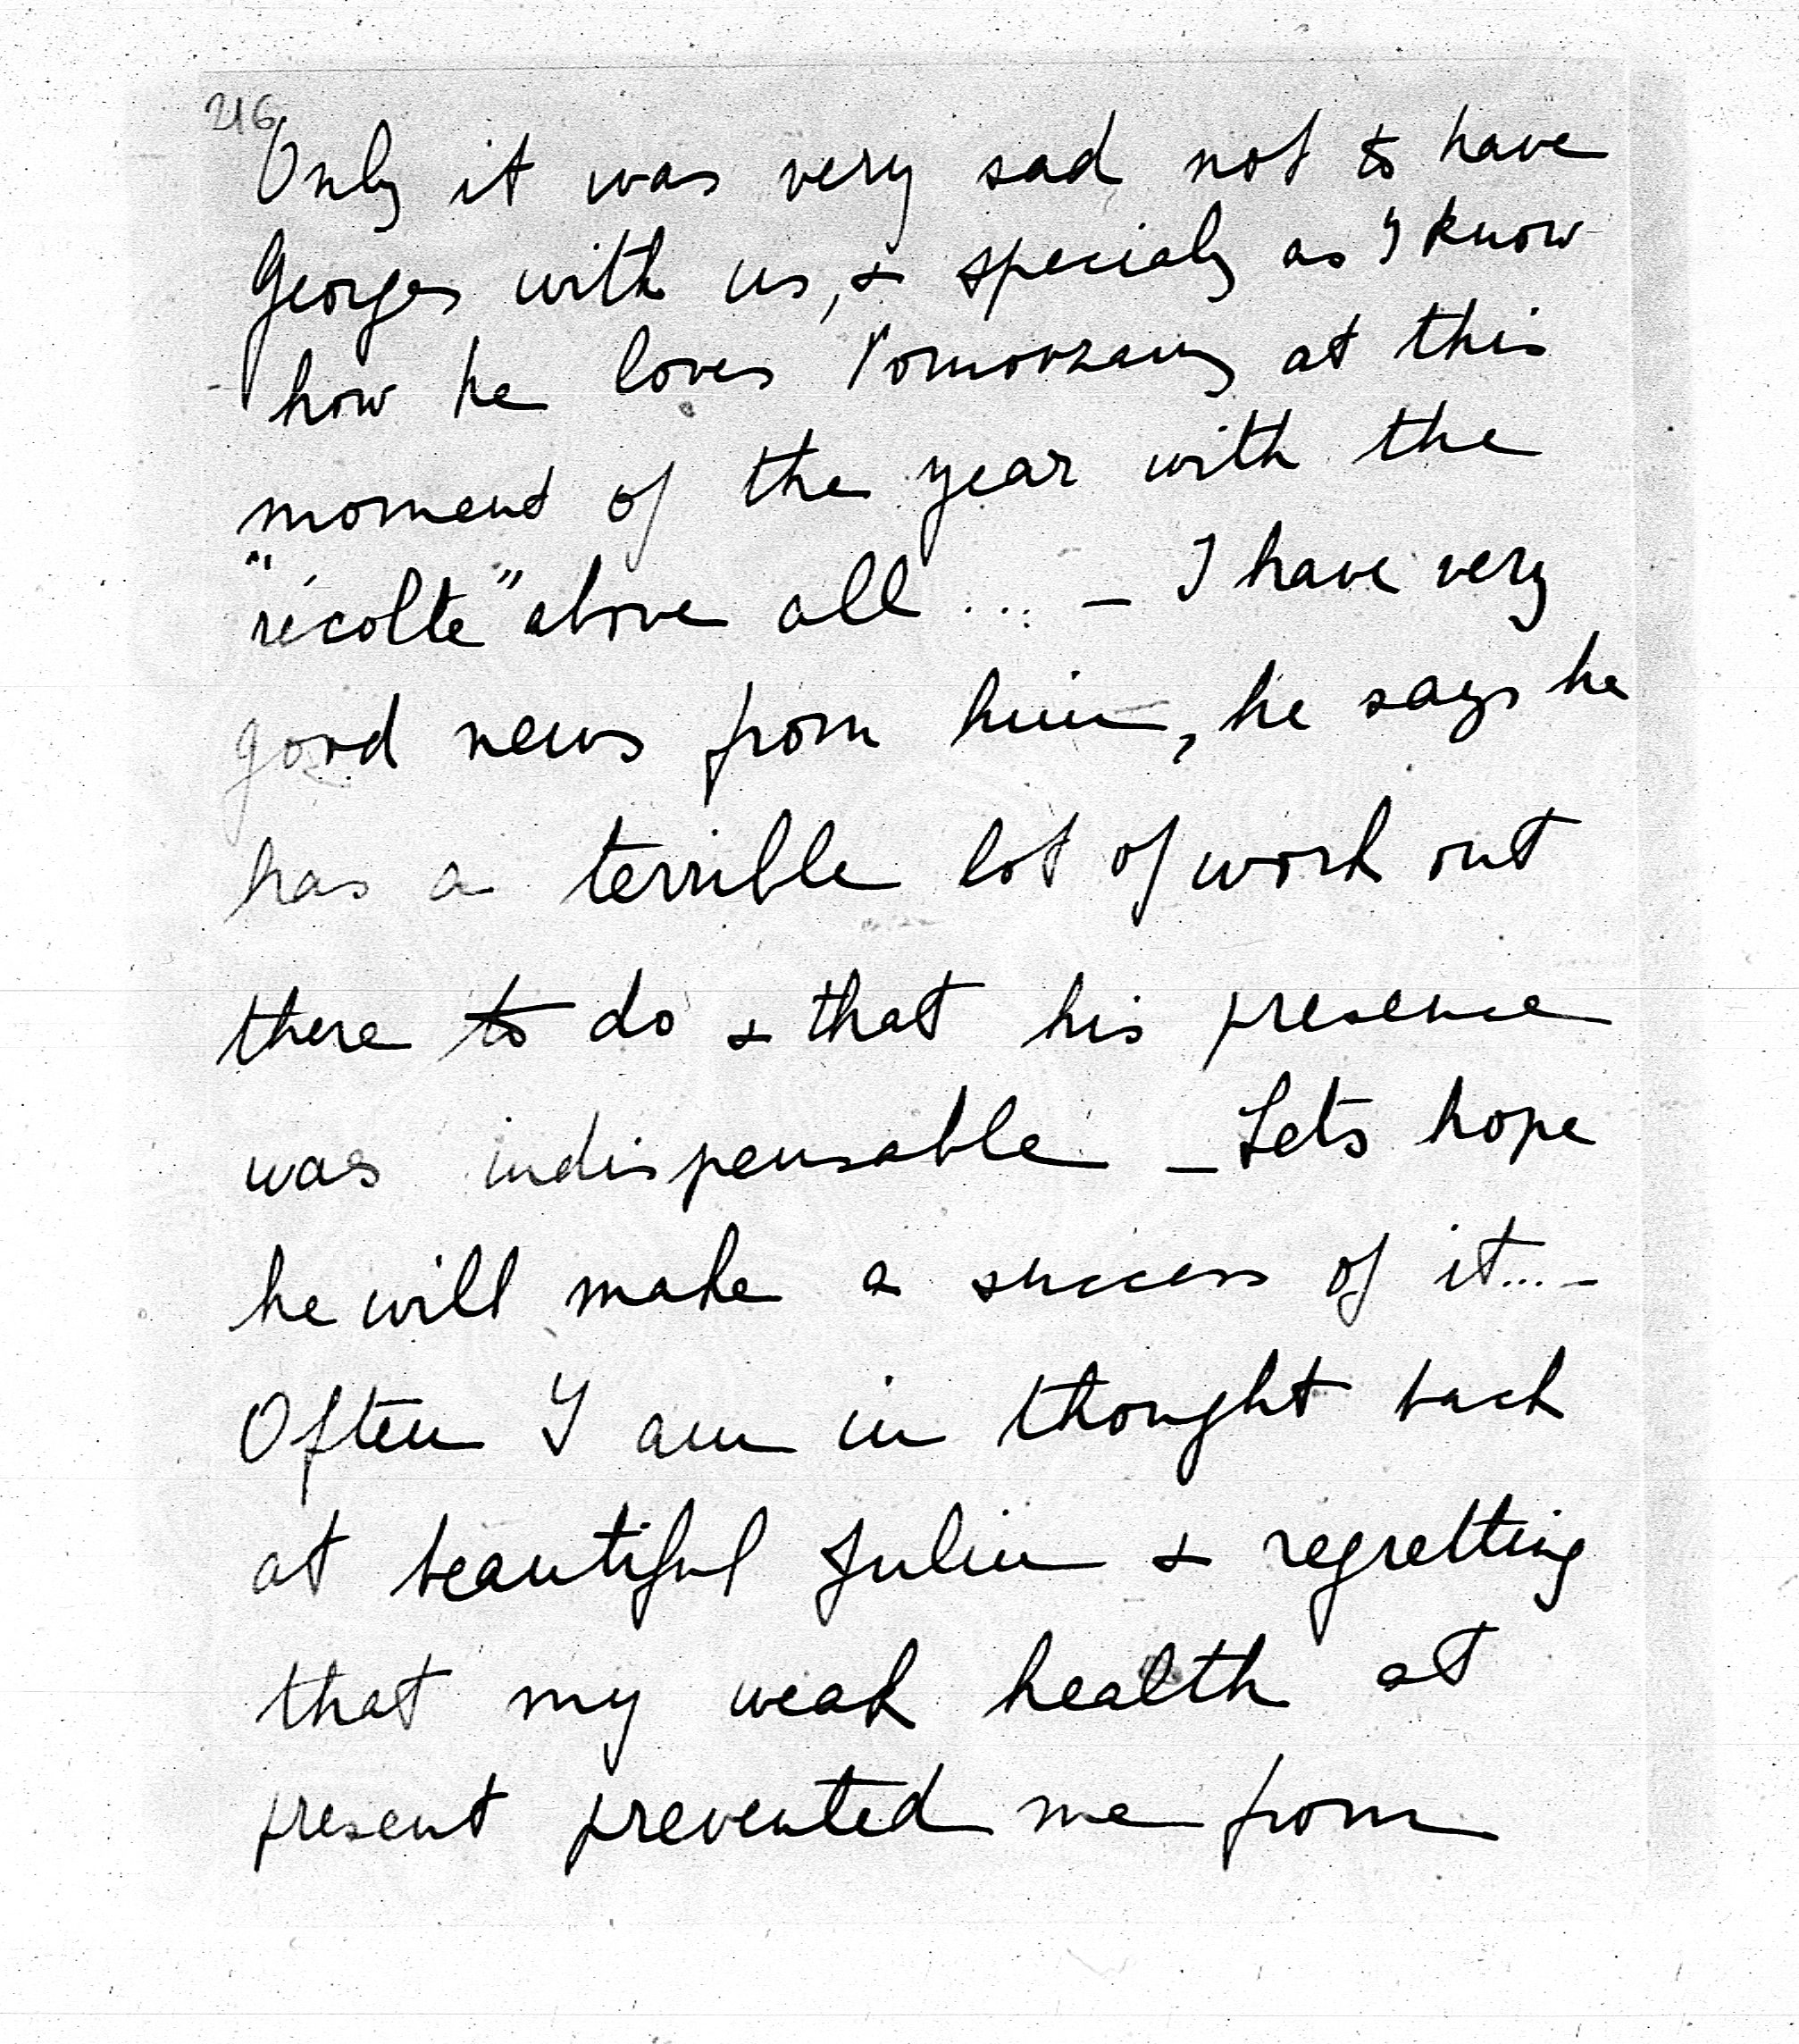 216
Only it was very sad not to have
Georges with us, & specialy as I know
how he loves Pomorzany at this
moment of the year with the
"récolte" above all ... – I have very
good news from him, he says he
has a terrible lot of work out
there to do & that his presence
was indispensable – Lets hope
he will make a success of it... –
Often I am in thought back
at beautiful Julin & regretting
that my weak health at
present prevented me from